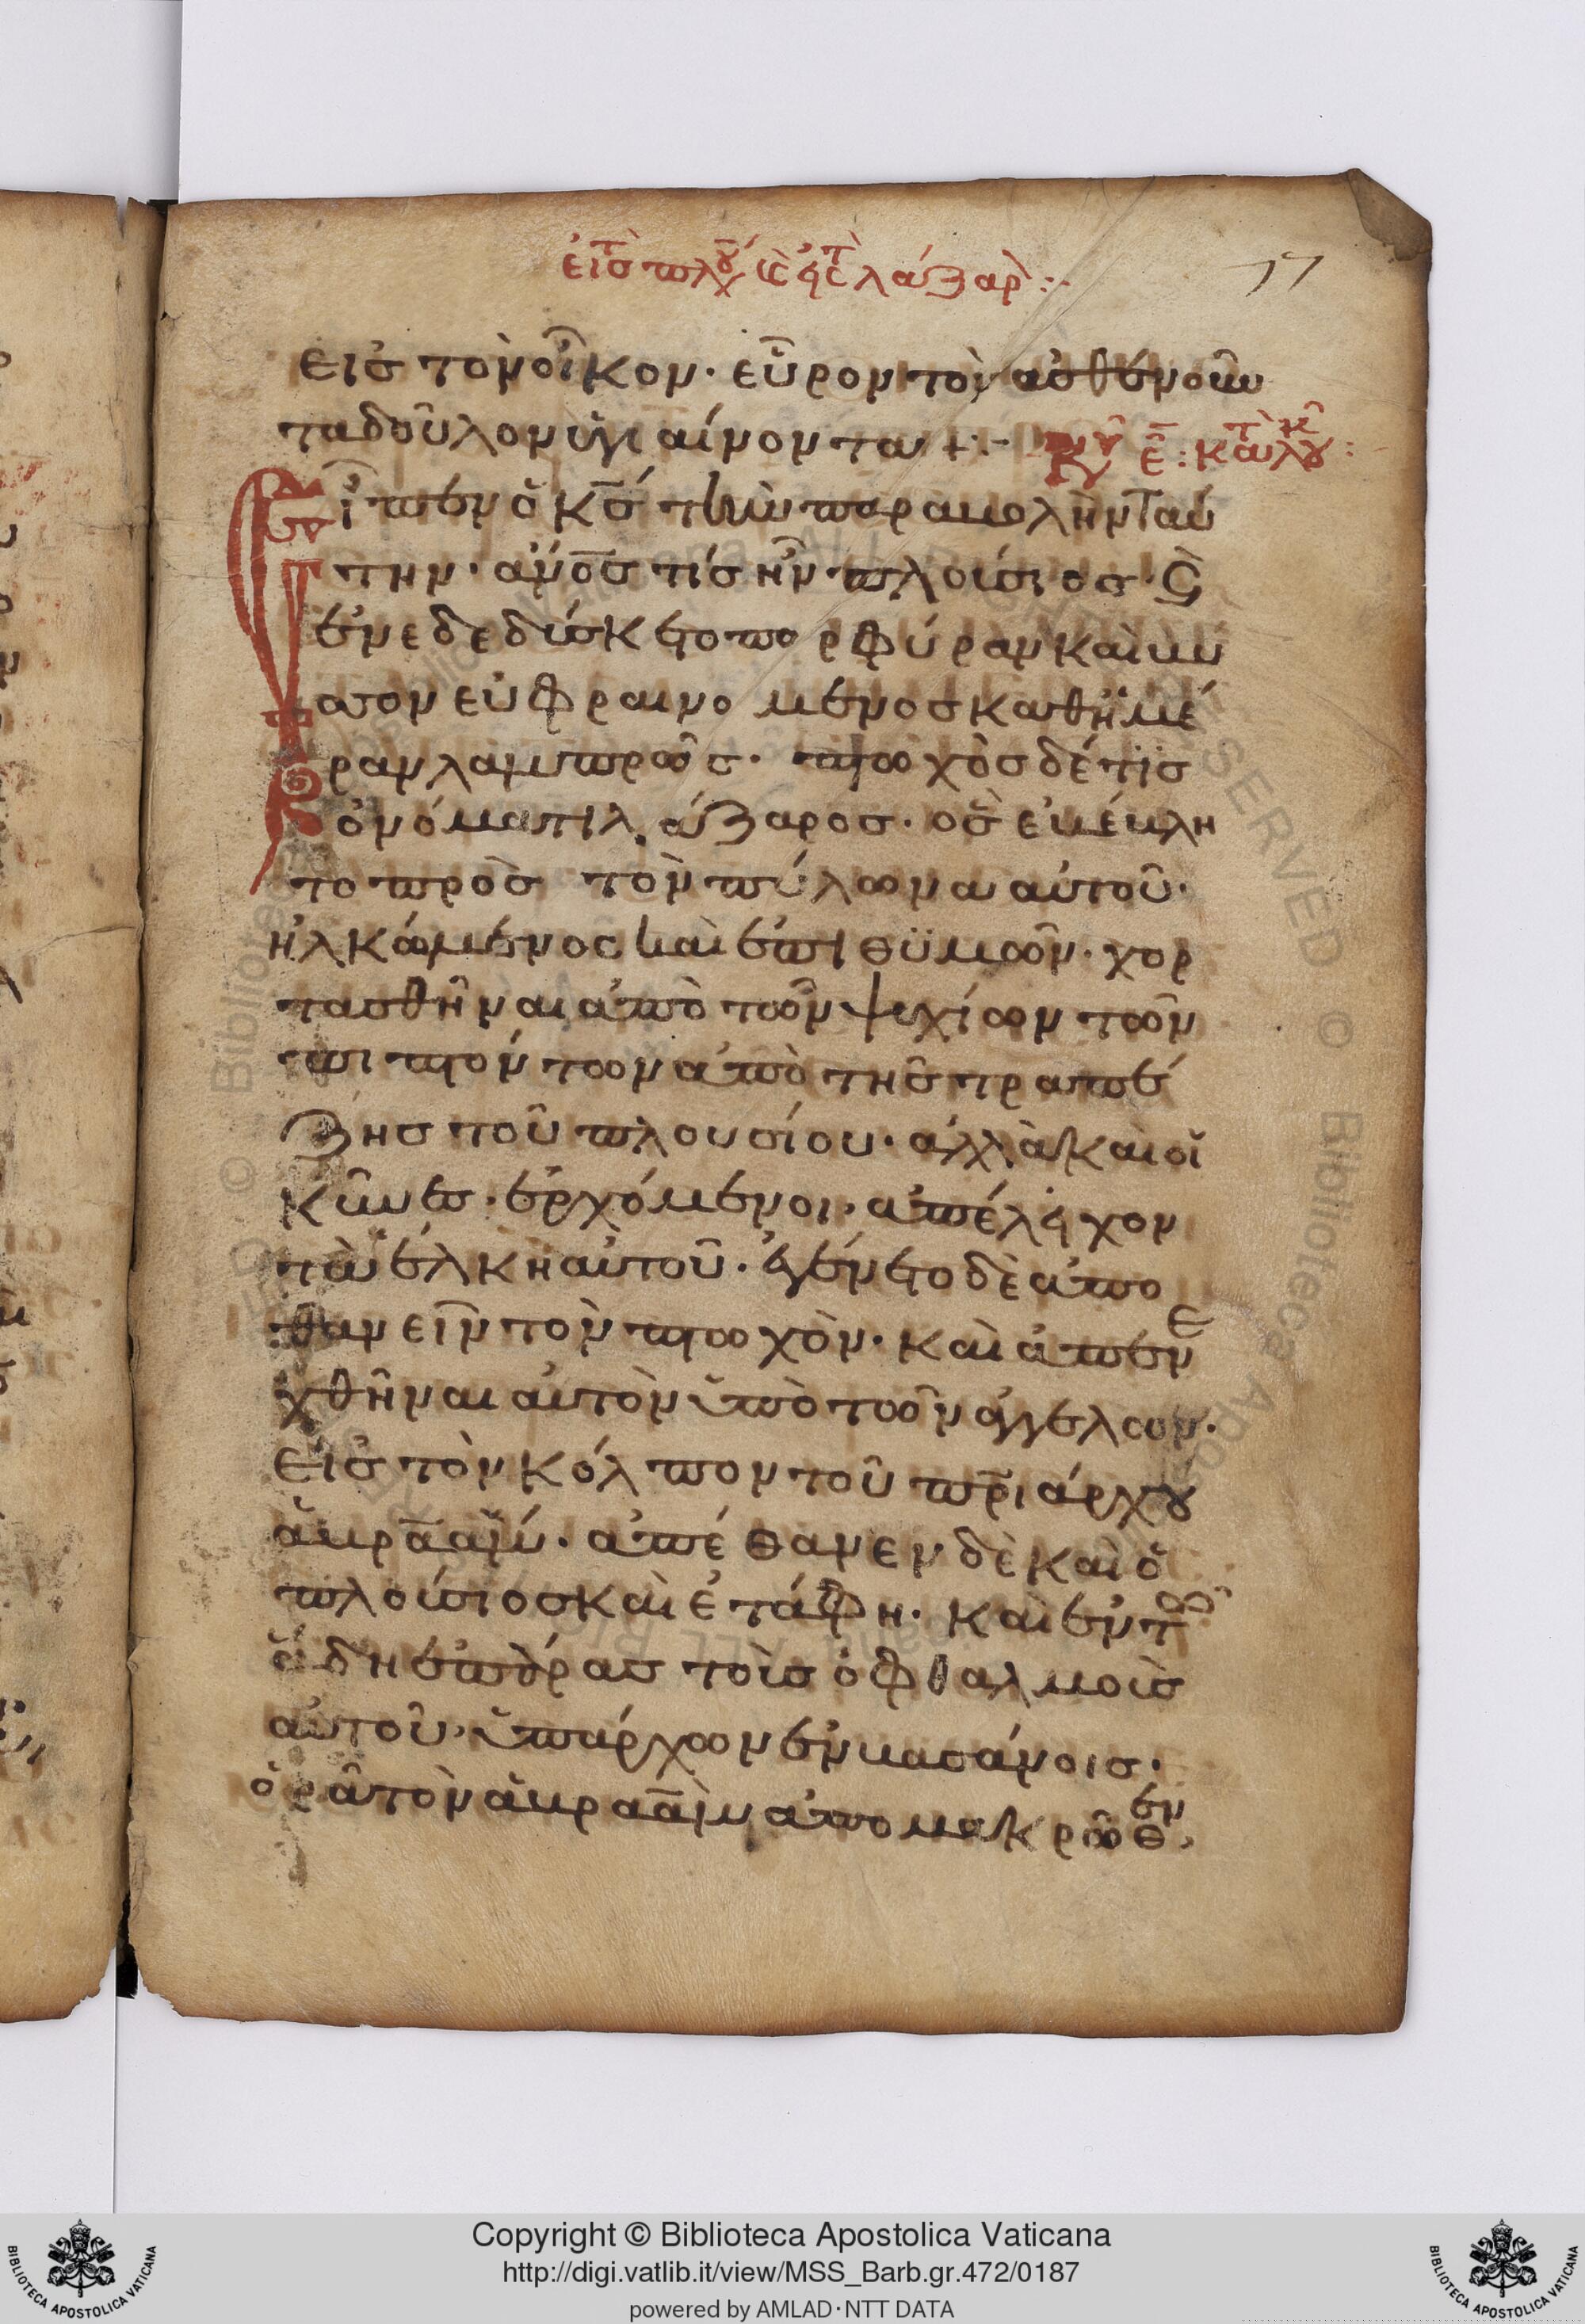 εἰς τὸ πλού κὲ εἰς τὸ λάζαρ :·
77
εις τὸν οἶκον· εὗρον τὸν ἀσθενοῦν
τα δοῦλον ὑγιαίνοντα +:- κυ ε : κατὰ λου :
εἶπεν ὁ κς τὴν παραβολὴν ταύ
την· ἀνος τίς ἦν πλούσιος· ς
ἐνεδεδύσκετο πορφύραν καὶ βύ
σσον εὐφραινομενος καθημέ
ραν λαμπρῶς· πτωχὸς δέ τις
ὀνόματι λάζαρος· ὃς ἐβέβλη
το πρὸς τὸν πύλωνα αὐτοῦ·
ἡλκόμενος καὶ ἐπιθϋμῶν· χορ
τασθῆναι ἀπὸ τῶν ψυχίων τῶν
πιπτόντων ἀπὸ τῆς τραπέ
ζης τοῦ πλουσίου· ἀλλὰ καὶ οἱ
κῦνες· ἐρχόμενοι· ἀπέλειχον
τὰ ἕλκη αὐτοῦ· ἐγένετο δὲ ἀπο
θανεῖν τὸν πτωχὸν· καὶ ἀπενε
χθῆναι αὐτὸν ὑπὸ τῶν ἀγγέλων·
εἰς τὸν κόλπον τοῦ πριάρχου
ἀβραάμ· ἀπέθανεν δὲ καὶ ὁ
πλούσιος καὶ ἐτάφη· καὶ ἐν τῶ
ἅδη ἐπάρας τοὶς ὀφθαλμοὶς
αὐτοῦ· ὑπάρχων ἐν βασάνοις·
ὁρᾶ τὸν ἀβραὰμ ἀπο μακρῶθεν,
Copyright © Biblioteca Apostolica Vaticana
http://digi.vatlib.it/view/MSS_Barb.gr.472/0187
powered by AMLAD·NTT DATA
BIBLIOTECA APOSTOLICA VATICANA
BIBLIOTECA APOSTOLICA VATICANA